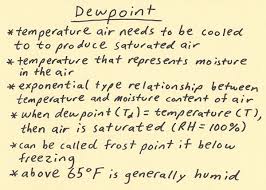 Dewpoint
* temperature air needs to be cooled
to to produce saturated air
* temperature that represents moisture
in the air
* exponential type relationship between
temperature and moisture content of air
* when dewpoint (Td) = temperature (T),
then air is saturated (RH = 100%)
* can be called frost point if below
freezing
* above 65°F is generally humid